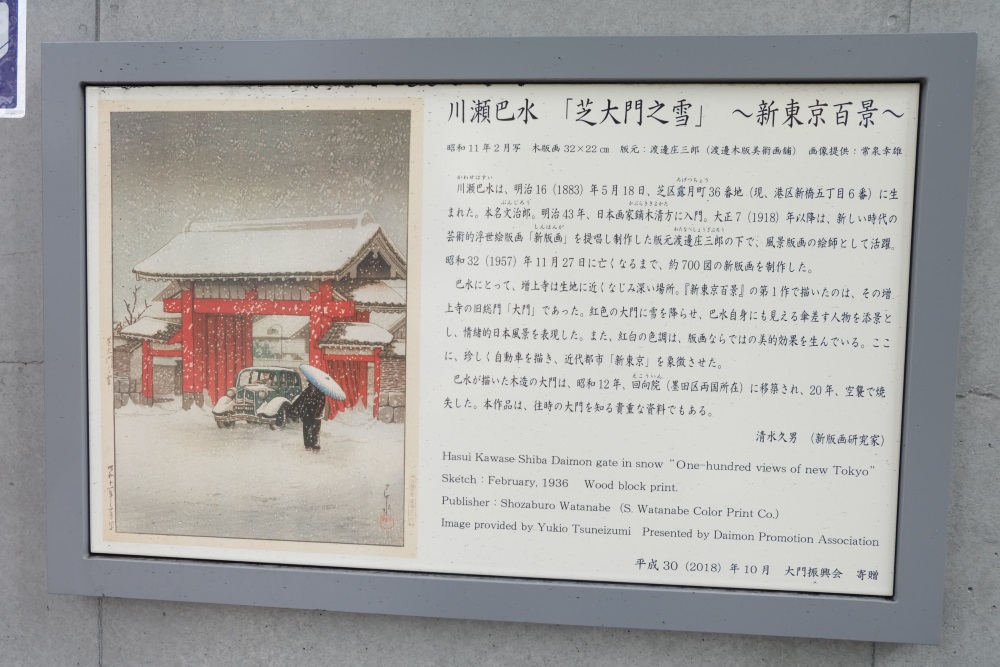 川瀬巴水 「芝大門之雪」 ～新東京百景～
昭和11年2月写 木版画32×22㎝ 版元：渡邊庄三郎（渡邊木版美術画舗） 画像提供：常泉幸雄
かわせはすい ろげつちょう
川瀬巴水は、明治16（1883）年5月18日、芝区露月町36番地（現、港区新橋五丁目6番）に生
ぶんじろう かぶらききよかた
まれた。本名文治郎。明治43年、日本画家鏑木清方に入門。大正7（1918）年以降は、新しい時代の
しんはんが わたなべしょうざぶろう
芸術的浮世絵版画「新版画」を提唱し制作した版元渡邊庄三郎の下で、風景版画の絵師として活躍。
昭和32（1957）年11月27日に亡くなるまで、約700図の新版画を制作した。
巴水にとって、増上寺は生地に近くなじみ深い場所。『新東京百景』の第1作で描いたのは、その増
上寺の旧総門「大門」であった。紅色の大門に雪を降らせ、巴水自身にも見える傘差す人物を添景と
し、情緒的日本風景を表現した。また、紅白の色調は、版画ならではの美的効果を生んでいる。ここ
に、珍しく自動車を描き、近代都市「新東京」を象徴させた。
えこういん
巴水が描いた木造の大門は、昭和12年、回向院（墨田区両国所在）に移築され、20年、空襲で焼
失した。本作品は、往時の大門を知る貴重な資料でもある。
清水久男 （新版画研究家）
Hasui Kawase Shiba Daimon gate in snow “One-hundred views of new Tokyo”
Sketch : February, 1936 Wood block print.
Publisher : Shozaburo Watanabe (S. Watanabe Color Print Co.)
Image provided by Yukio Tsuneizumi Presented by Daimon Promotion Association
平成30（2018）年10月 大門振興会 寄贈
巴水